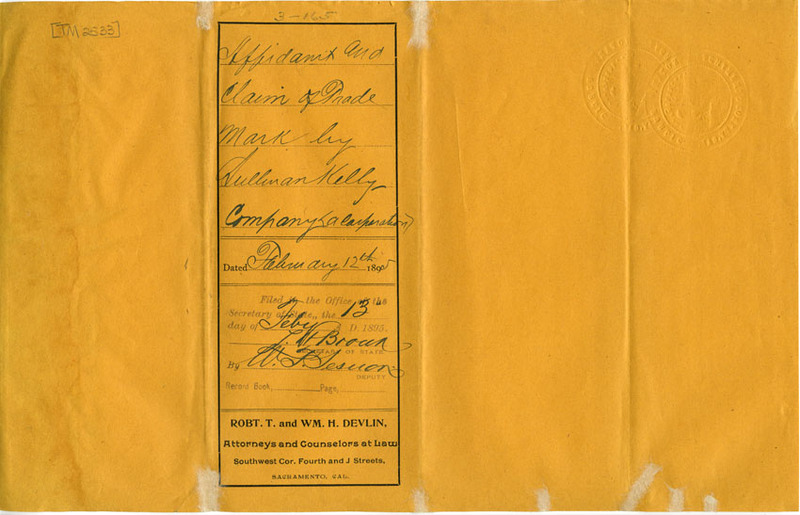 [TM 2533]
3-165
Affidavit and
Claim of Trade
Mark by
Sullivan Kelly
Company (a Corporation)
Dated February 12th 1895
Filed in the Office of the
Secretary of State, the 13
day of Feby A. D. 1895.
Brown
SECRETARY OF STATE
By W. T.
DEPUTY
Record Book, Page,
ROBT. T. and WM. H. DEVLIN,
Attorneys and Counselors at Law
Southwest Cor. Fourth and J Streets,
SACRAMENTO, CAL.